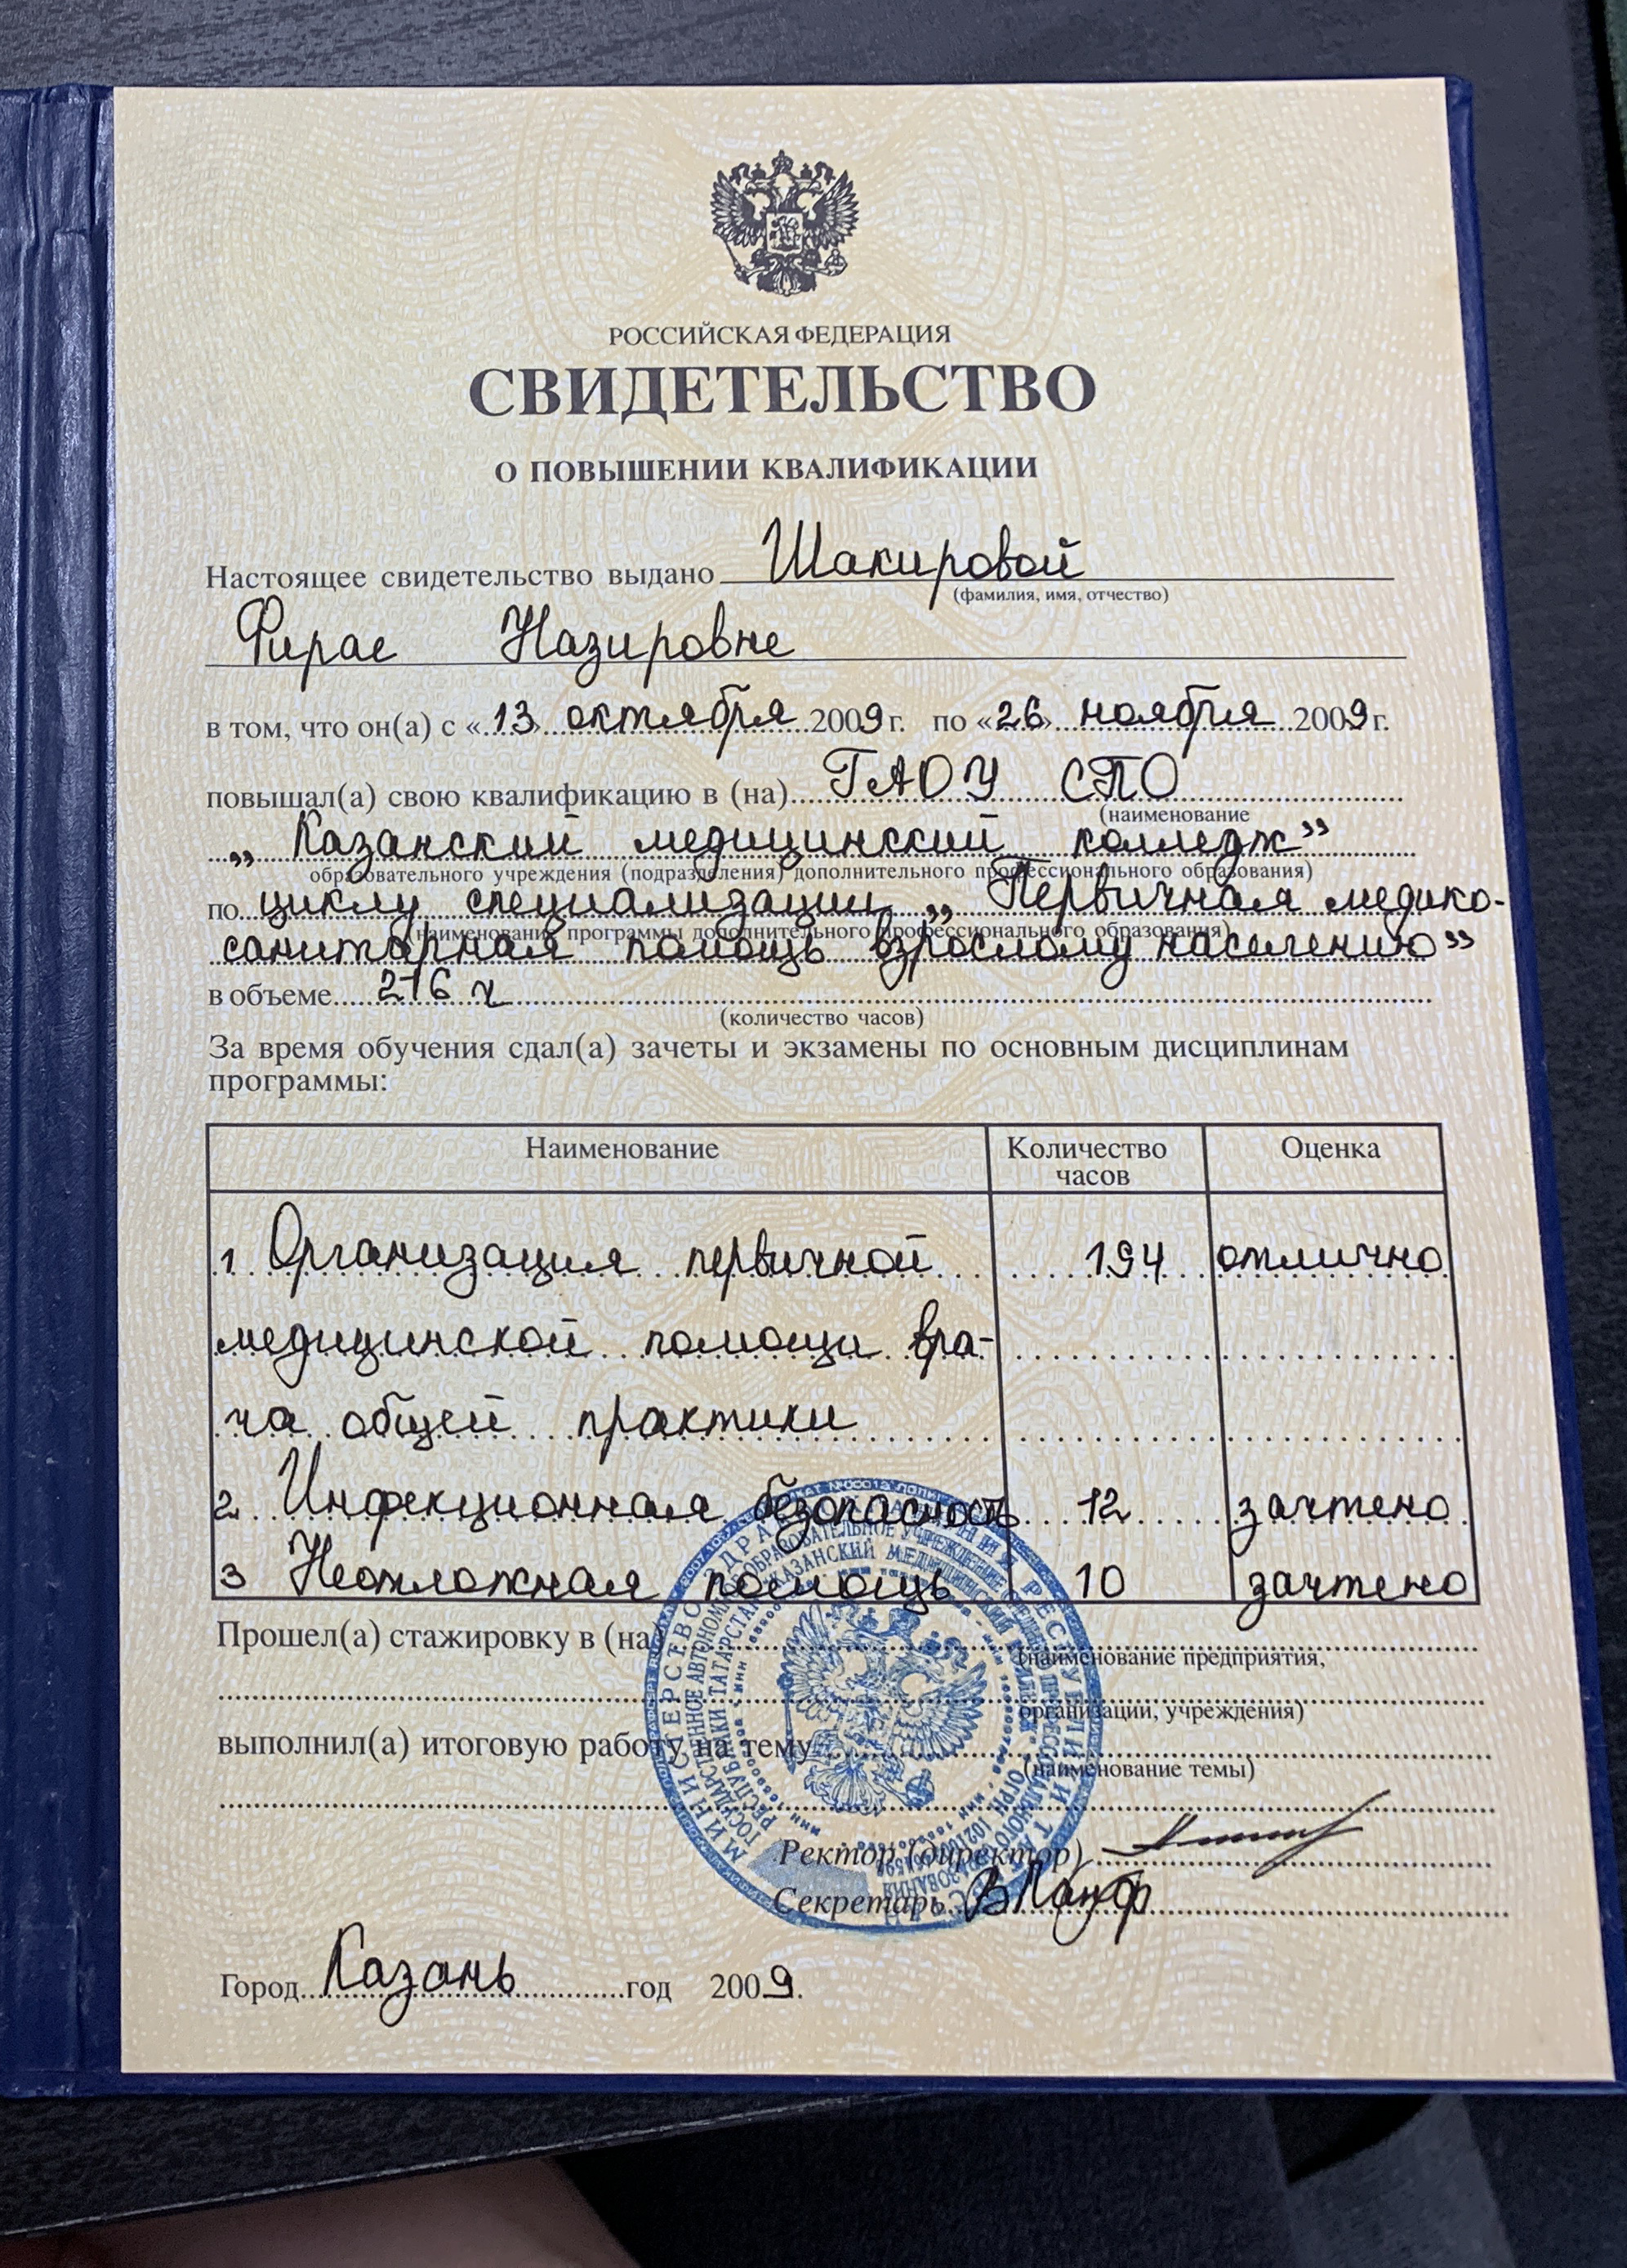 РОССИЙСКАЯ ФЕДЕРАЦИЯ
СВИДЕТЕЛЬСТВО
О ПОВЫШЕНИИ КВАЛИФИКАЦИИ
Настоящее свидетельство выдано Шакировой
(фамилия, имя, отчество)
Фирае Назировне
в том, что он(а) с «13» октября 2009 г. по «26» ноября 2009 г.
повышал(а) свою квалификацию в (на) ГАОУ СПО
(наименование
„Казанский медицинский колледж”
образовательного учреждения (подразделения) дополнительного профессионального образования)
по циклу специализации „Первичная медико-
(наименование программы дополнительного профессионального образования)
санитарная помощь взрослому населению”
в объеме 216 ч
(количество часов)
За время обучения сдал(а) зачеты и экзамены по основным дисциплинам
программы:
Наименование Количество часов Оценка
1. Организация первичной 194 отлично
медицинской помощи вра-
ча общей практики
2. Инфекционная безопасность 12 зачтено
3 Неотложная помощь 10 зачтено
Прошел(а) стажировку в (на)
(наименование предприятия,
организации, учреждения)
выполнил(а) итоговую работу на тему
(наименование темы)
Ректор (директор)
Секретарь
Город Казань год 2009.
МИНИСТЕРСТВО ЗДРАВООХРАНЕНИЯ РЕСПУБЛИКИ ТАТАРСТАН
КАЗАНСКИЙ МЕДИЦИНСКИЙ КОЛЛЕДЖ